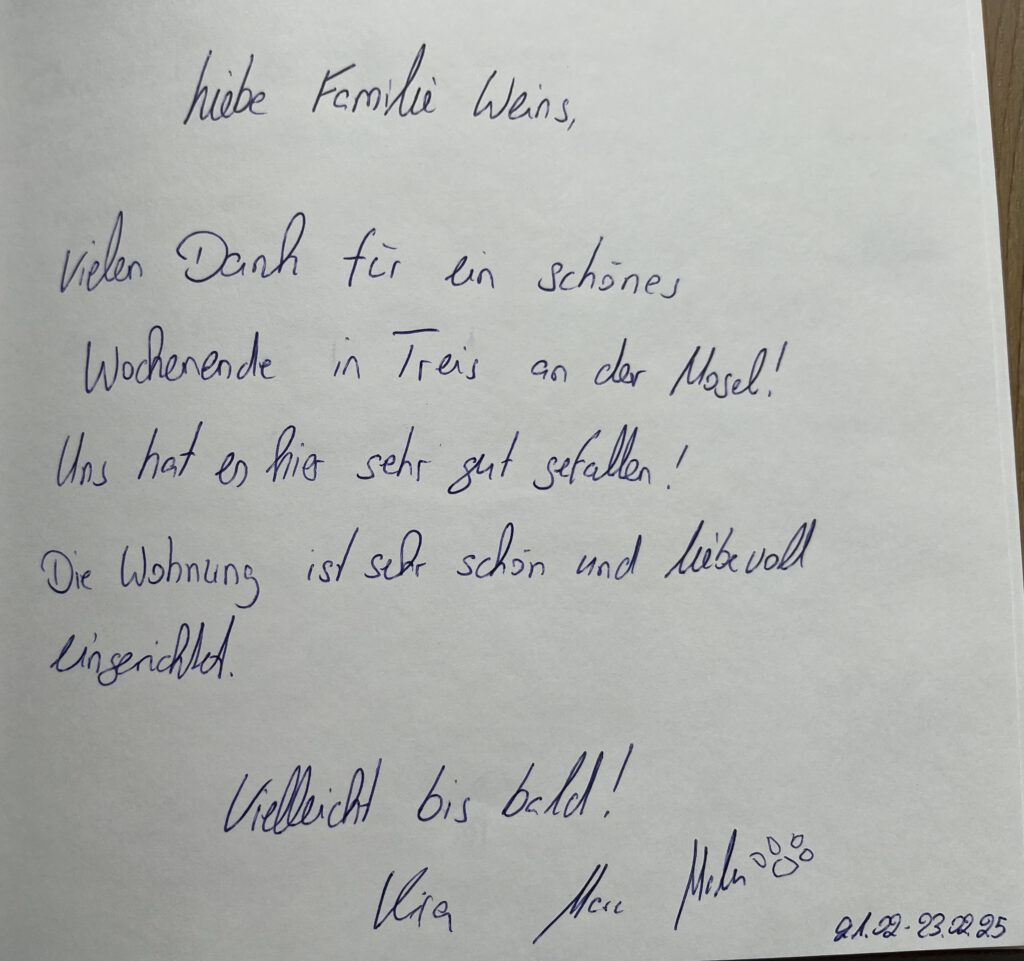 Liebe Familie Weins,
Vielen Dank für ein schönes
Wochenende in Treis an der Mosel!
Uns hat es hier sehr gut gefallen!
Die Wohnung ist sehr schön und liebevoll
eingerichtet.
Vielleicht bis bald!
Marc
21.02-23.02.25